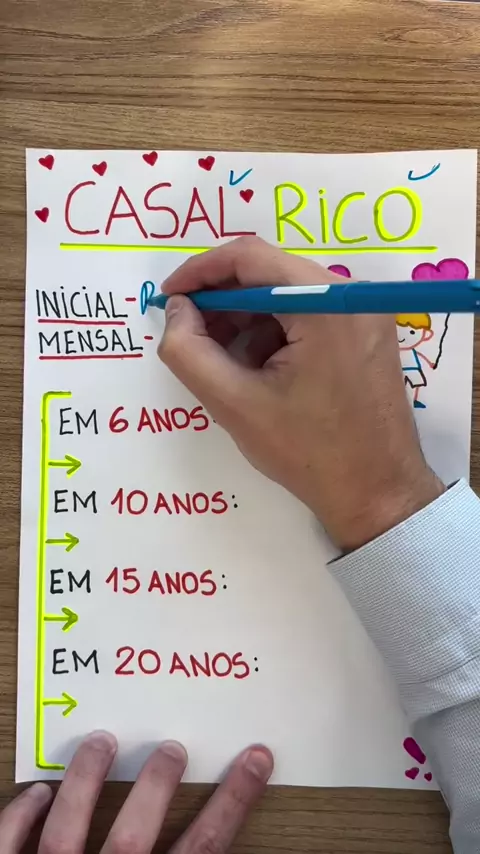 CASAL RICO
INICIAL- R
MENSAL-
EM 6 ANOS:
EM 10 ANOS:
EM 15 ANOS:
EM 20 ANOS: